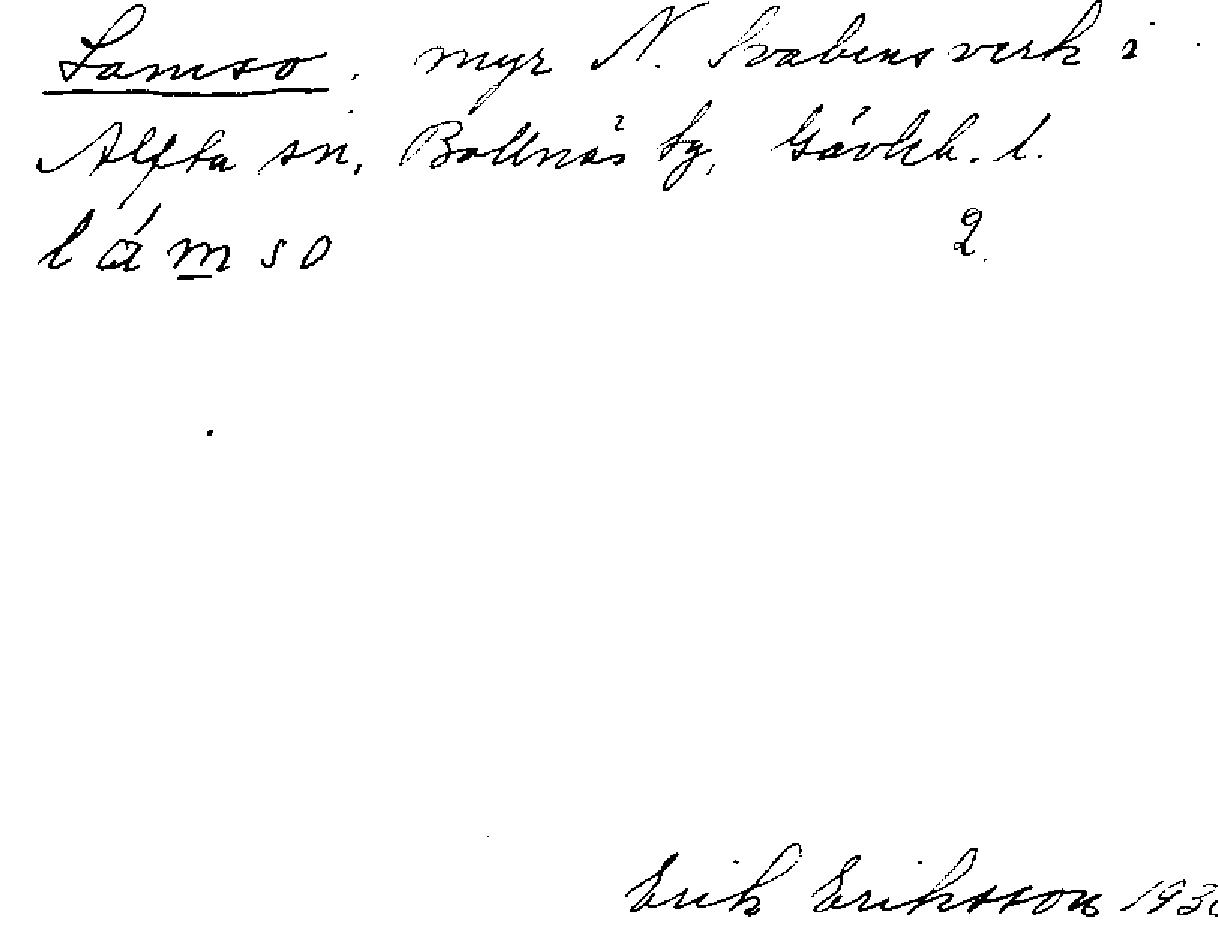 Lamso, myr N. Svabensverk i
Alfta sn, Bollnäs tg, Gävleb. l.
lámso 2.
Erik Eriksson